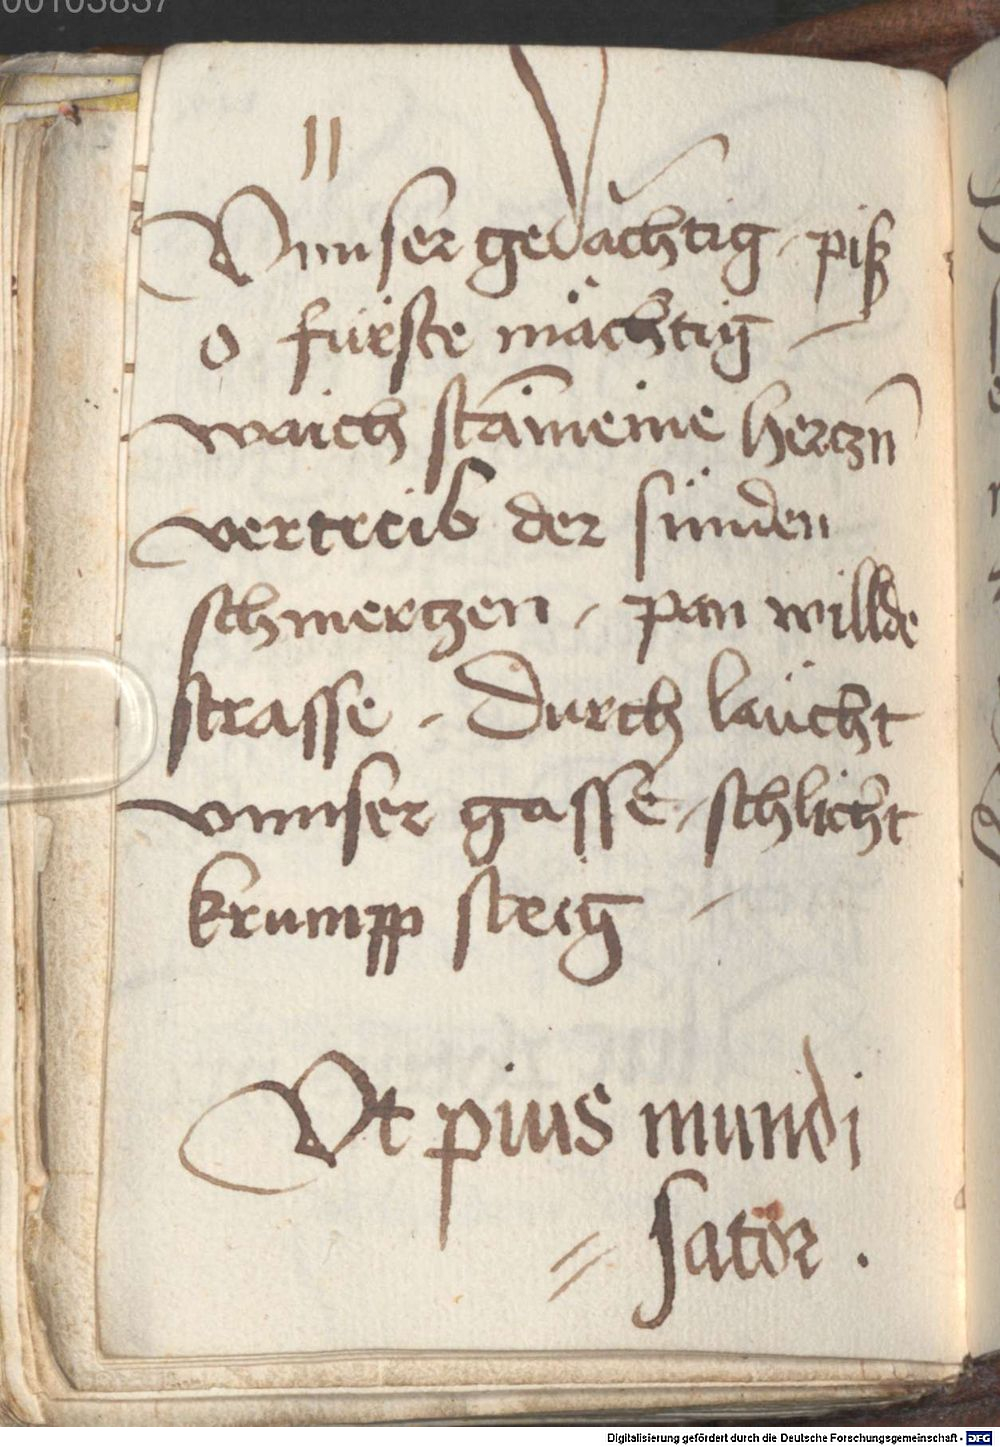 00103837
Vnnser gedächtig, piß
o fürste mächtig
waich stāineine hertzn̄
vertreib der sünden
schmertzen, pan willde
strasse, Durch laücht
vnnser gasse, schlicht
krumpp steig
Vt pius mundi
sator .
Digitalisierung gefördert durch die Deutsche Forschungsgemeinschaft - DFG